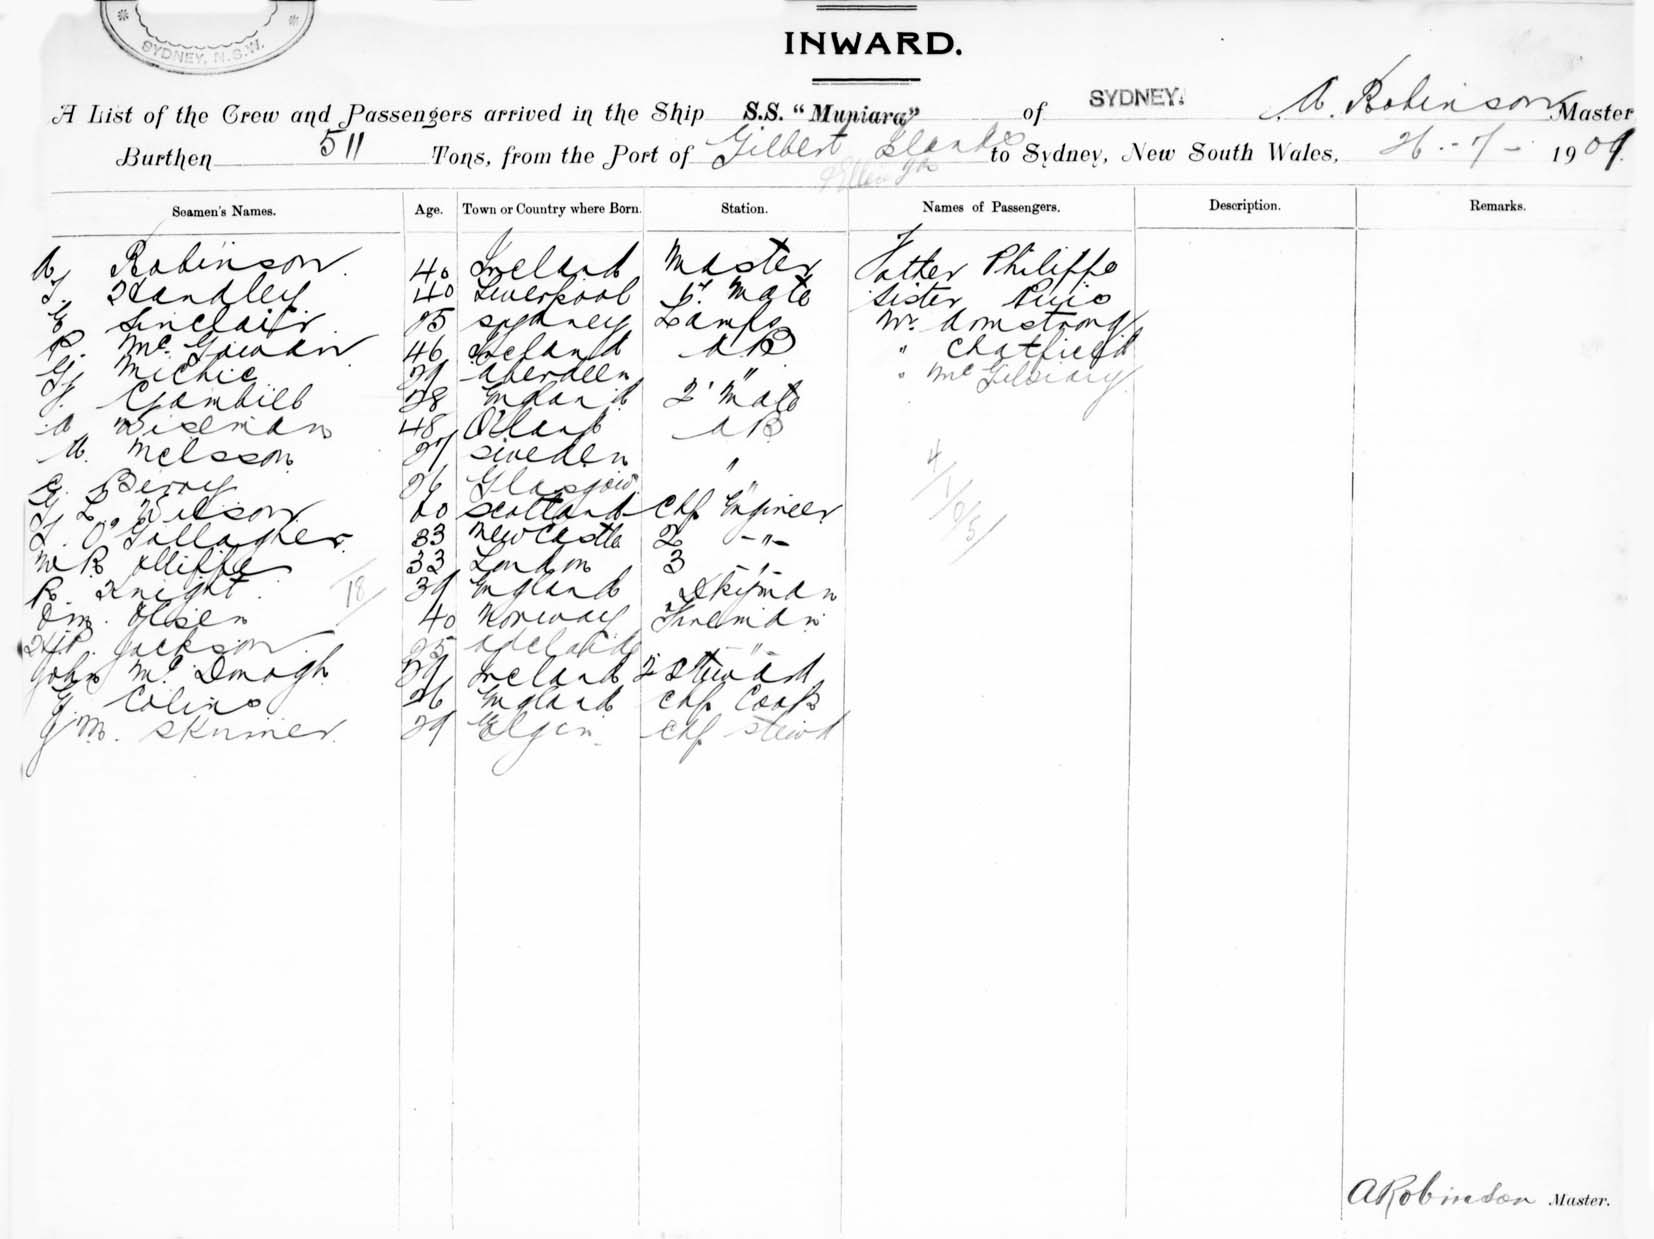 SYDNEY, N.S.W.
INWARD.
A List of the Crew and Passengers arrived in the Ship S.S. "Muniara" of SYDNEY. A. Robinson Master
Burthen 511 Tons, from the Port of Gilbert Islands to Sydney, New South Wales, 26-7- 1909
Seamen's Names. Age. Town or Country where Born. Station. Names of Passengers. Description. Remarks.
A. Robinson 40 Ireland Master Father Philippe
T. Handley 40 Liverpool 1st Mate Sister
E. Sinclair 25 Sydney Lamps Mr. Armstrong
P. McGowan 46 Ireland AB " Chatfield
G. Michie 29 Aberdeen " "
J. Gambill 28 England 2' Mate
A. Wiseman 48 Oland AB
A. Nelsson 27 Sweden "
G. Berry 26 Glasgow "
G. L. Wilson 60 Scotland Chf Engineer
T. O'Gallagher 33 Newcastle 2 -"-
M R Olliffe 33 London 3 -"-
R. Knight 39 England Dkyman
18
Om. Olsen 40 Norway Fireman
H.P. Jackson 25 Adelaide -"-
John McDonagh 29 Ireland 2 Steward
G Colins 26 England Chf Cook
J M. Skinner 29 Elgin Chf Stewd
ARobinson Master.